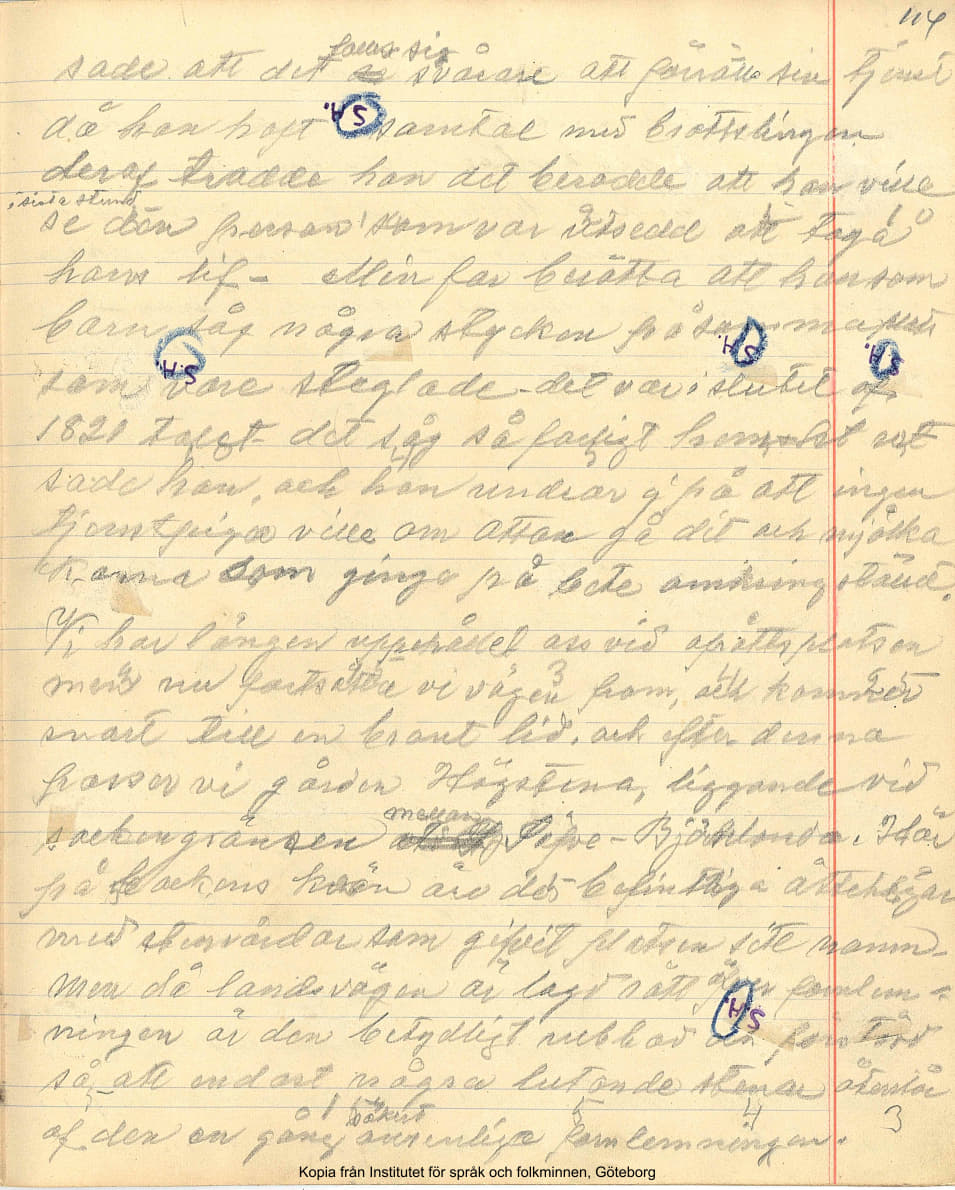 114
fans sig
sade att det svårare att förrätta sin tjenst
S.H.
då han haft samtal med brottslingen
deraf trodde han det berodde att han ville
i sista stund
se den person som var utsedd att taga
hans lif - Min far berätta att han som
barn såg några stycken på samma plats
S.H. S.H. S.H.
som vore steglade - det var i slutet af
1820 talet - det såg så hemskt ut
sade han, och han undrar ej på att ingen
tjenstpiga ville om aftan gå dit och mjölka
korna som gingo på bete omkring stället.
Vi har längen uppehållet oss vid afrättsplatsen
men nu fortsätta vi vägen fram, och kommer
snart till en brant lid, och efter denna
passer vi gården Högstena, liggande vid
mellan
sockengränsen Björlanda. Här
på backens krön äro de befintliga ättehögar
med stenvårdar som gifvit platsen sitt namn -
Men då landsvägen är lagd rätt öfver fornlem-
S.H.
ningen är den betydligt rubbad
så att endast några lutande stenar återstår
säkert 5 4 3
af den en gång ansenliga fornlemningen.
Kopia från Institutet för språk och folkminnen, Göteborg